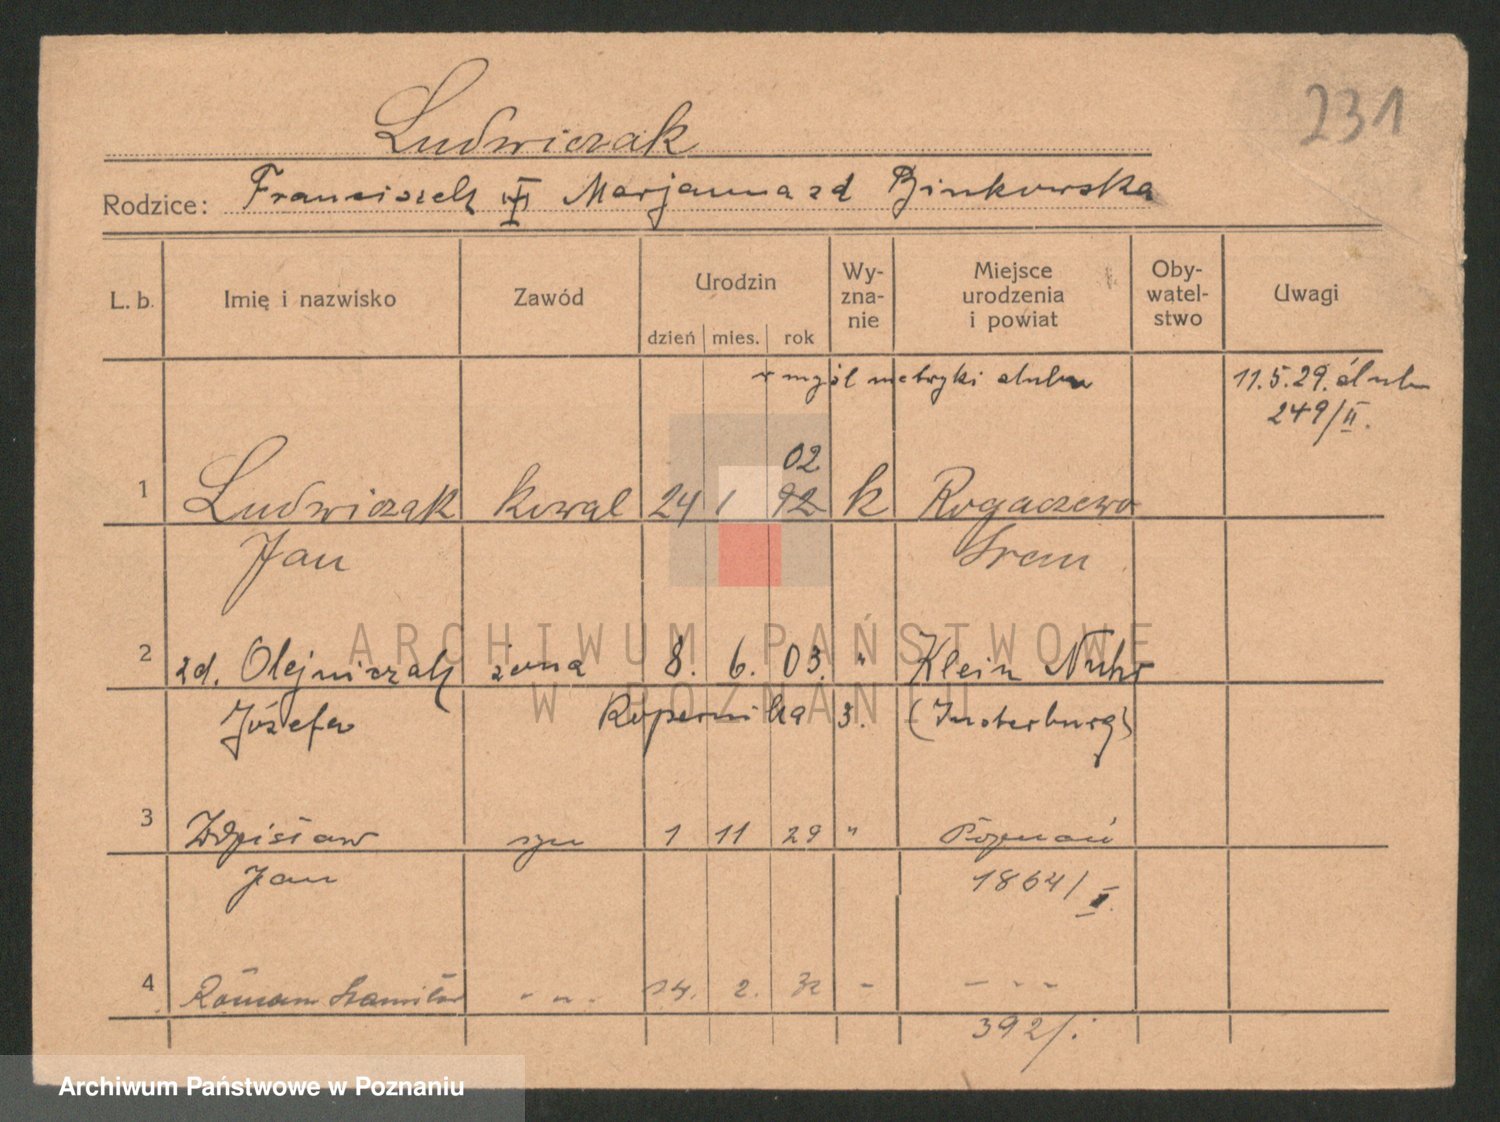 231
Ludwiczak
Rodzice: Franciszek Marjanna zd Binkowska
L. b. Imię i nazwisko Zawód Urodzin dzień mies. rok Wy-zna-nie Miejsce urodzenia i powiat Oby-watel-stwo Uwagi
w myśl metryki ślubu 11.5.29. ślub
249/II.
02
1 Ludwiczak kowal 24 1 92 k Rogaczewo
Jan Śrem
2 zd. Olejniczak żona 8. 6. 03. " Klein Nuhr
Józefa Kopernika 3. (Insterburg)
3 Zdzisław syn 1 11 29 " Poznań
Jan 1864/I.
4 Roman Stanisław - „ - 24. 2. 32 - - - -
392/.
ARCHIWUM PAŃSTWOWE
W POZNANIU
Archiwum Państwowe w Poznaniu